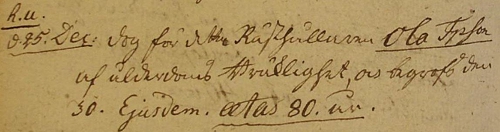 h.u.
d. 25. Dec: dog för detta Rusthållaren Ola Ipson
af ålderdoms bräklighet, as begrofs den
30. Ejusdem. ætas 80. år.